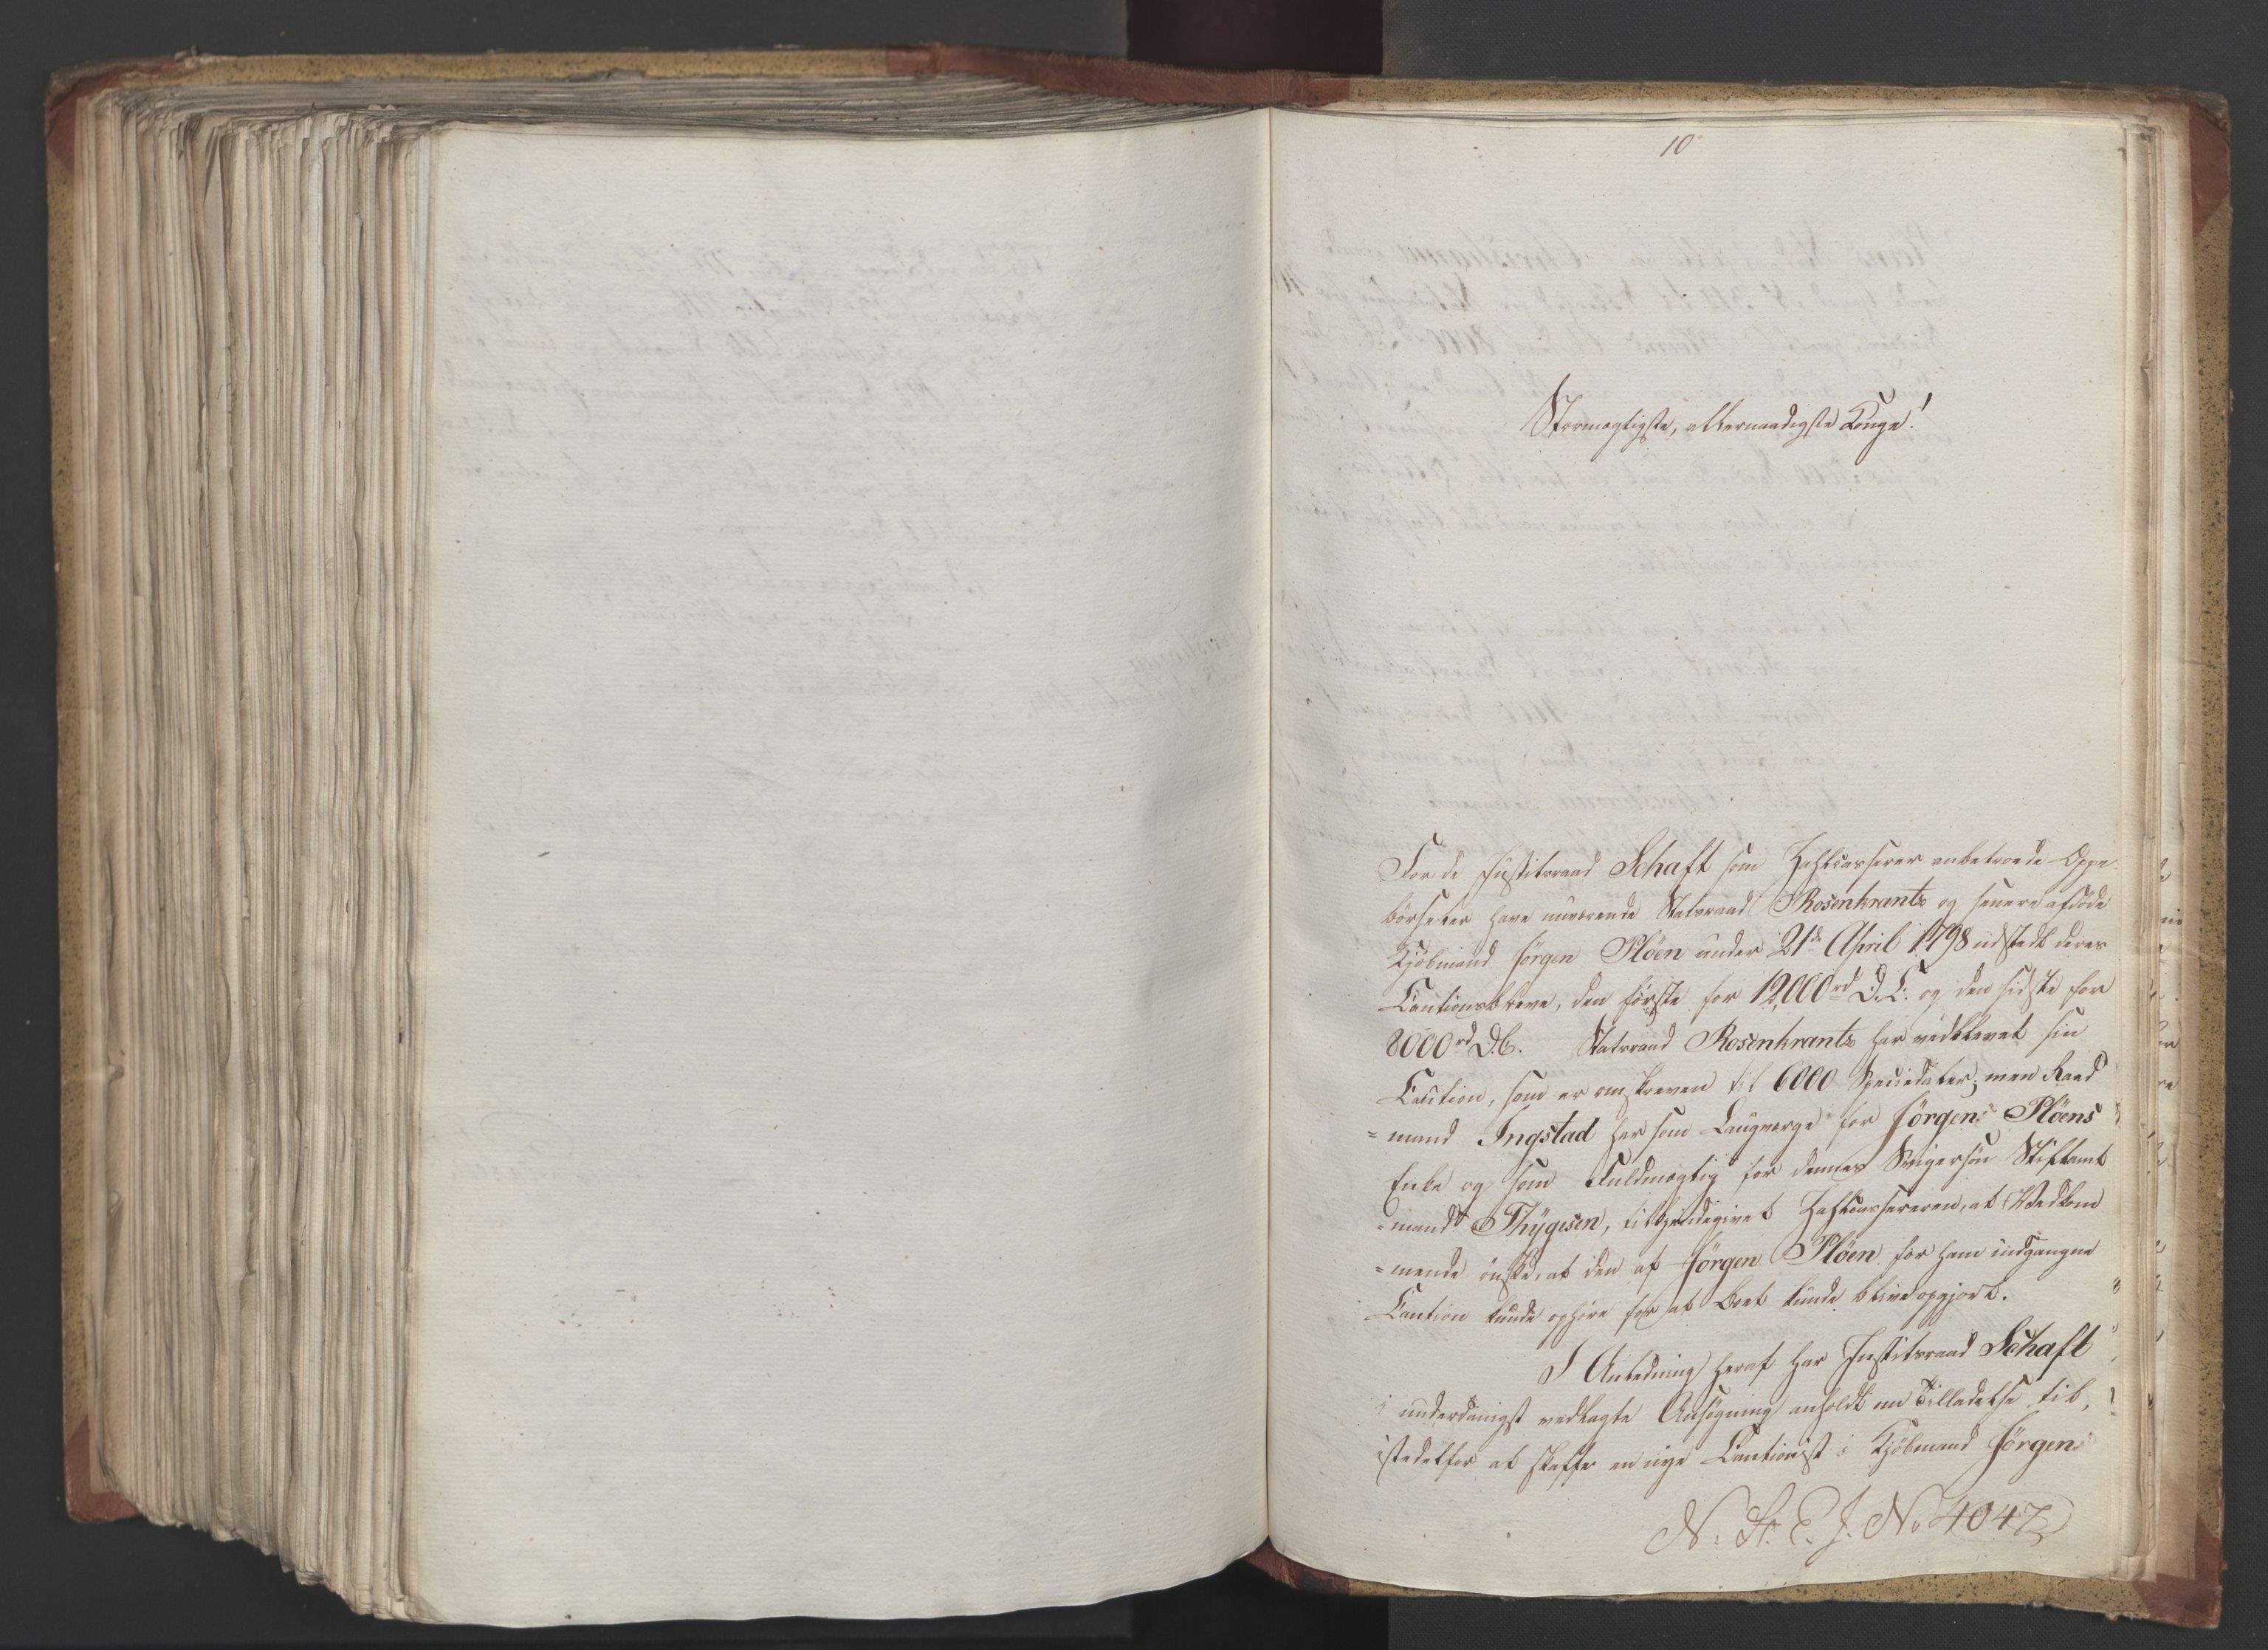 10
Stormægtigste, allernaadigste Konge!
For de Justitsraad Schaft som Zahlcasserer anbetroede Oppe
börseler have nuværende Statsraad Rosenkrantz og senere afdöde
Kjöbmand Jörgen Plöen under 21de April 1798 udstedt deres
Cautionsbreve, den förste for 12,000rd D.C. og den sidste for
8000rd D.C. Statsraad Rosenkrantz har vedblevet sin
Caution, som er omskreven til 6000 Speciedaler; men Raad
=mand Ingstad har som Laugværge for Jörgen Plöens
Enke og som Fuldmægtig for dennes Svigersön Stiftamt
=mand Thygesen, tilkjendegivet Zahlcassereren, at Vedkom
=mende önske, at den af Jörgen Plöen for ham indgangne
Caution kunde ophöre for at Boet kunde blive opgjort.
I Anledning heraf har Justitsraad Schaft
i underdanigst vedlagte Ansögning anholdt om Tilladelse til,
istedetfor at skaffe en nye Cautionist i Kjöbmand Jörgen
N. St. E. J. No 4047